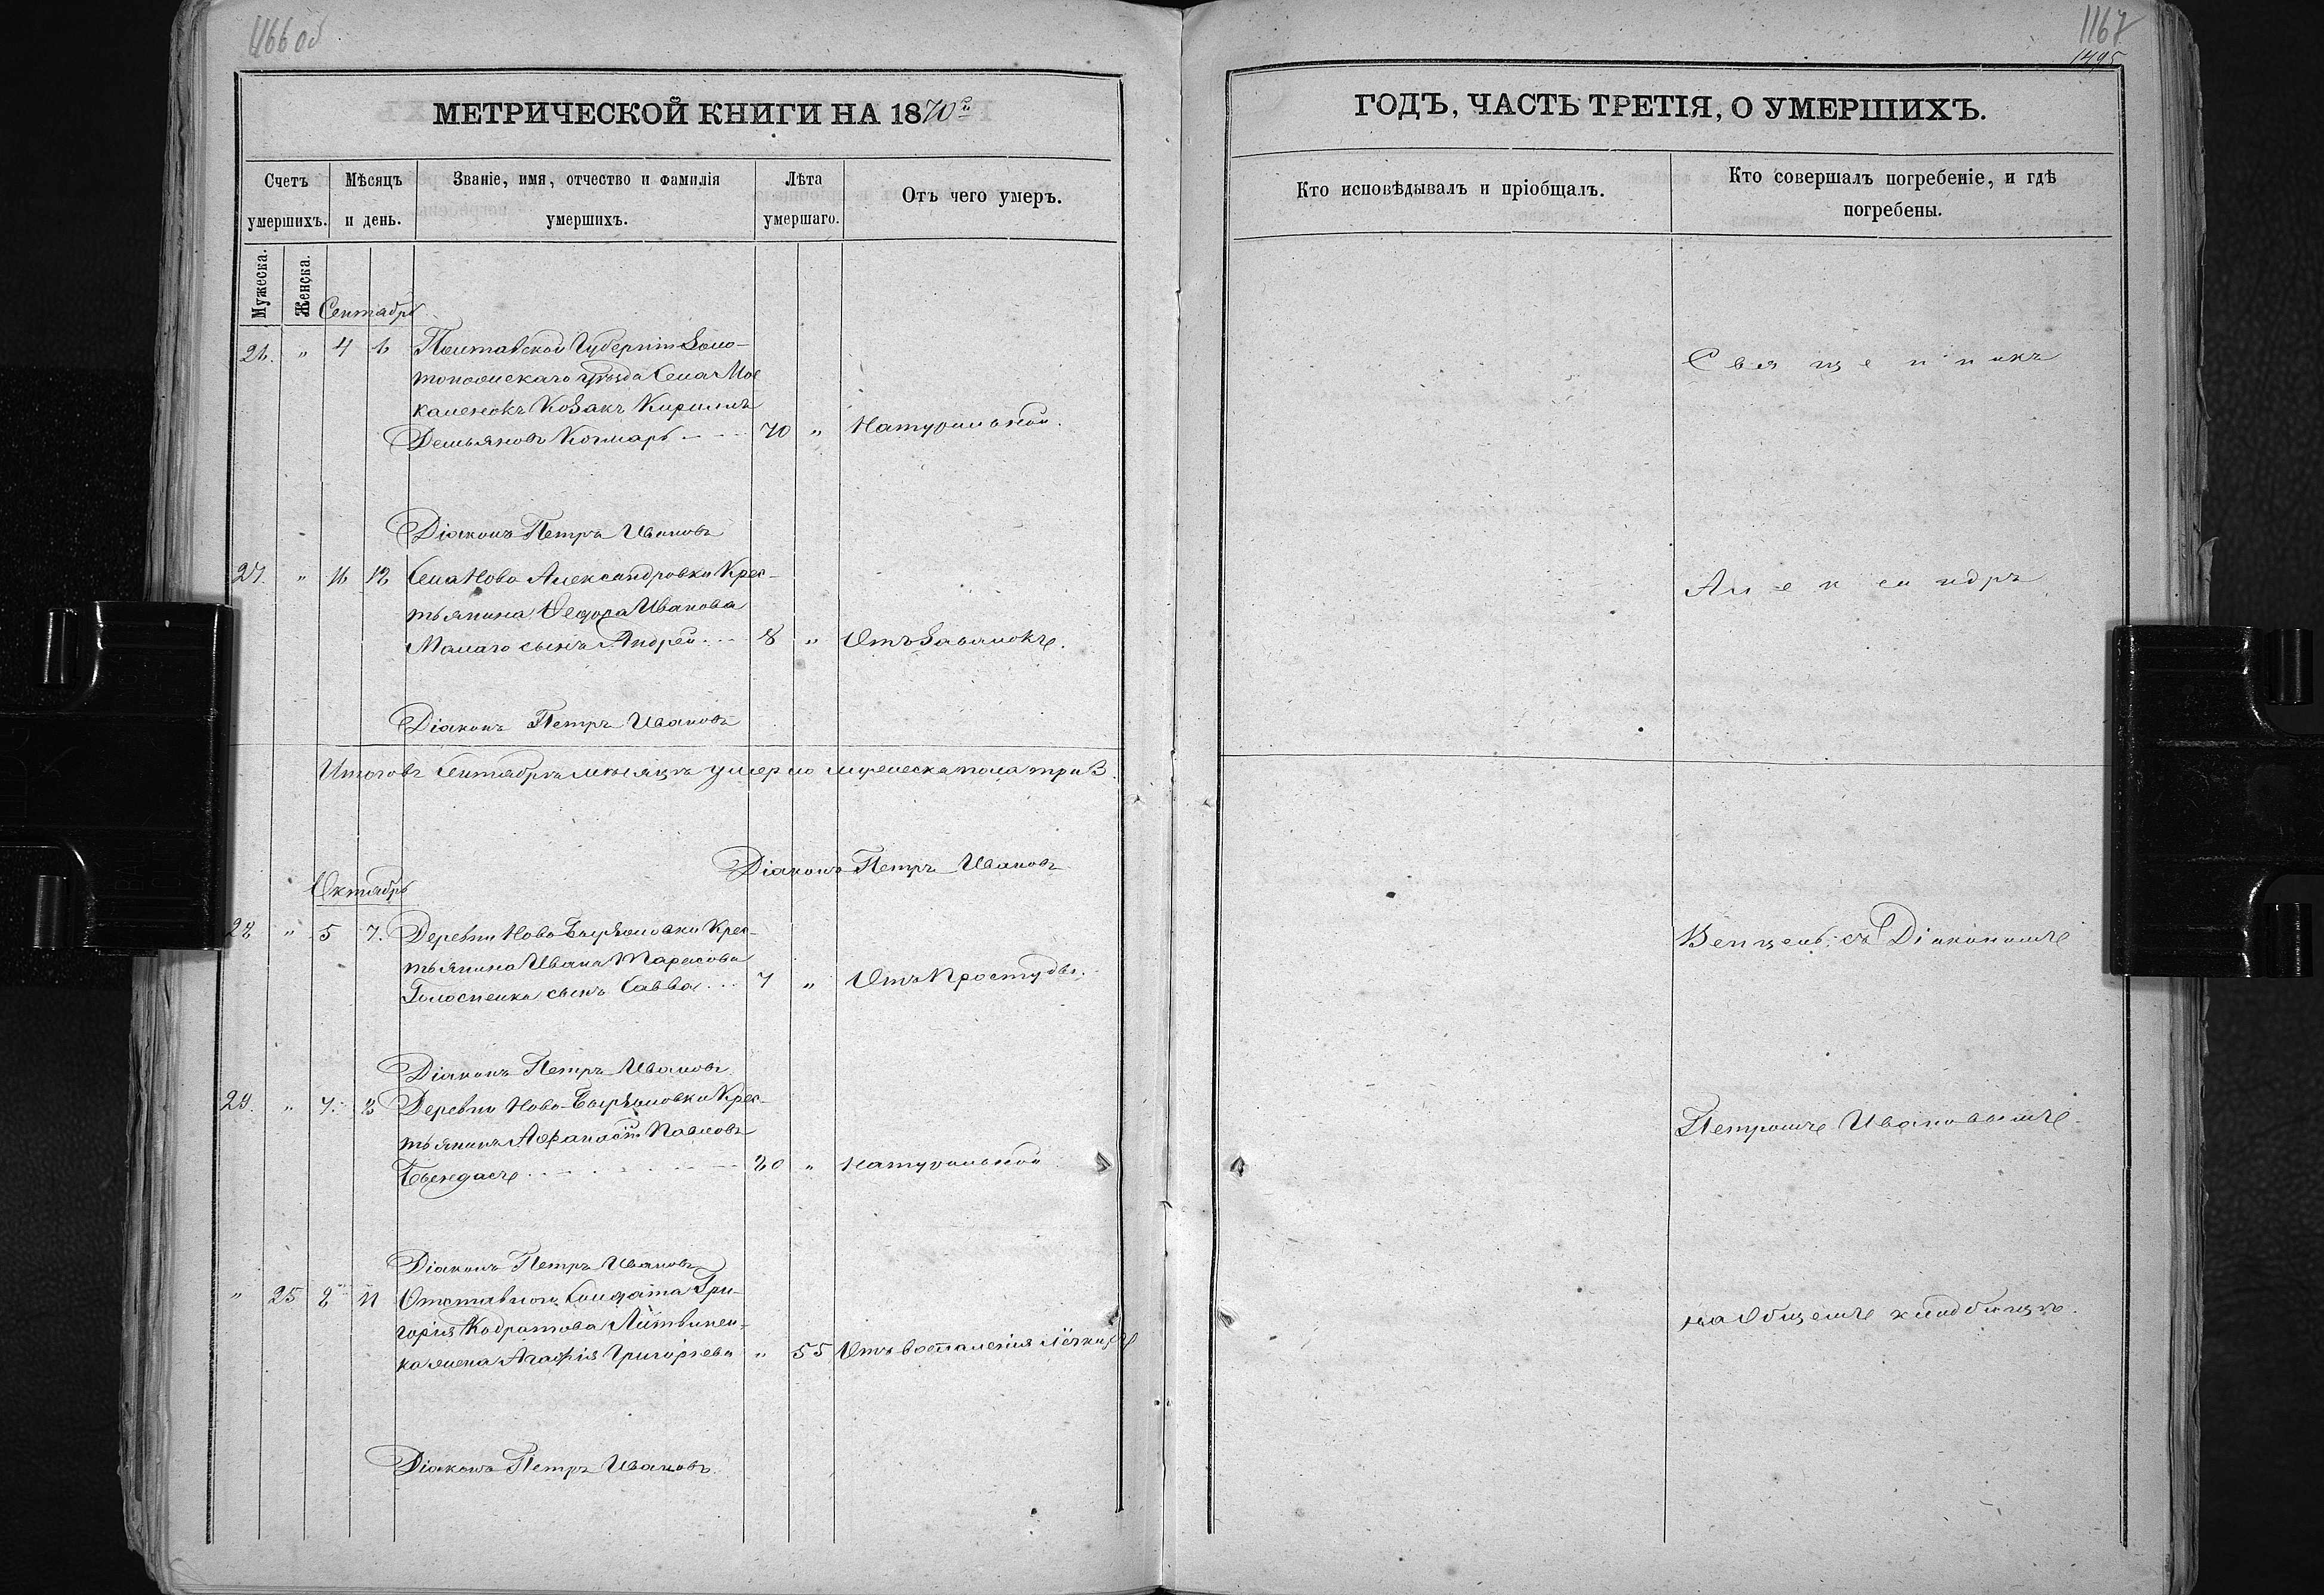 1166 об
МЕТРИЧЕСКОЙ КНИГИ НА 1870й
Счетъ умершихъ.
Мѣсяцъ и день.
Званіе, имя, отчество и фамилія умершихъ.
Лѣта умершаго.
Отъ чего умеръ.
Мужеска.
Женска.
Сентябрь
26. " 4 6 Полтавской Губерніи Золо-
тоношскаго уѣзда Села
Козакъ Кириллъ
Демьяновъ 70 " Натуральной.
Діаконъ Петръ Ивановъ
27. " 11 12 Села Ново Александровки Крес-
тьянина Ѳедора Иванова
Малаго сынъ Андрей 8 " Отъ
Діаконъ Петръ Ивановъ
Итого въ Сентябрѣ мѣсяцѣ умерло мужеска пола три 3.
Діаконъ Петръ Ивановъ
Октябрь
28 " 5 7. Деревни Ново Крес-
тьянина Ивана Тарасова
сынъ Савва 7 " Отъ Простуды.
Діаконъ Петръ Ивановъ
29. " 7. 8 Деревни Ново Крес-
тьянинъ Аѳанасій Павловъ
" Натуральной
Діаконъ Петръ Ивановъ
" 25 8 11 Отставного Солдата Гри-
горія Кодратова Литвинен-
ка жена Агафія Григорьева " 55 Отъ воспаленія
Діаконъ Петръ Ивановъ
1167
1495
ГОДЪ, ЧАСТЬ ТРЕТІЯ, О УМЕРШИХЪ.
Кто исповѣдывалъ и пріобщалъ.
Кто совершалъ погребеніе, и гдѣ погребены.
Священникъ
Александръ
съ Діакономъ
Петромъ Ивановымъ
на Общемъ кладбищѣ.